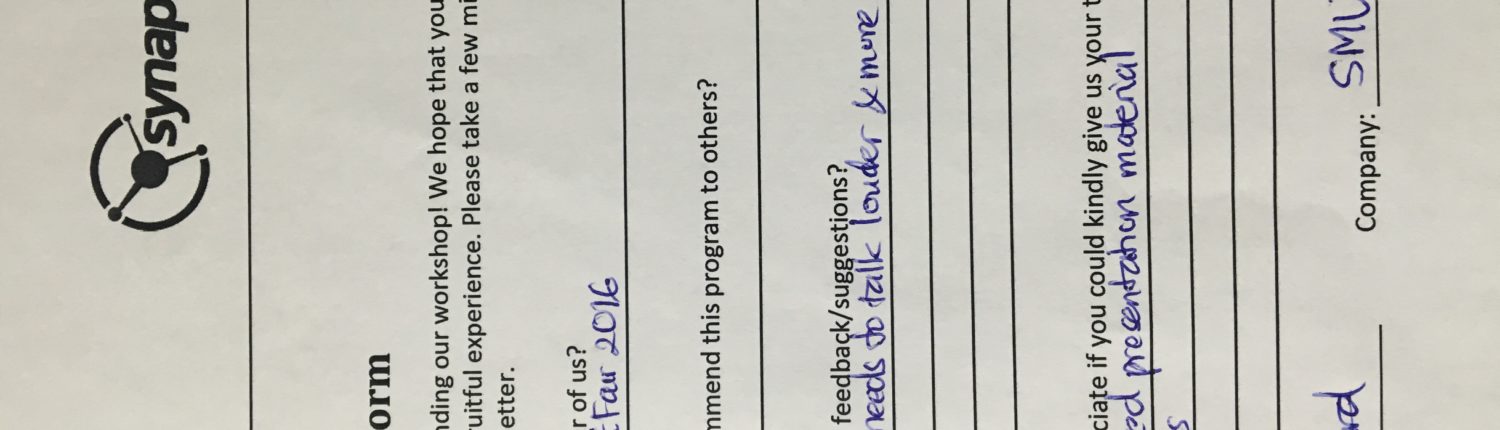 synap
orm
nding our workshop! We hope that you
uitful experience. Please take a few mi
etter.
r of us?
Fair 2016
mmend this program to others?
feedback/suggestions?
needs to talk louder & more
ciate if you could kindly give us your t
od presentation material
s
rd Company: SMU